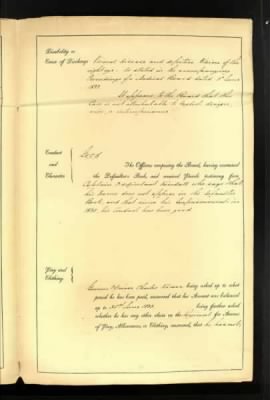 Disability or
Cause of Discharge
disease and defective vision of the
right eye. As stated in the accompanying
Proceedings of a Medical Board dated 5th June
1883
It appears to the Board that the
Case is not attributable to neglect, design,
vice, or intemperance
Conduct
and
Character
The Officers composing the Board, having examined
the Defaulters' Book, and received Parole testimony from
Captain & Adjutant who says that
his Name does not appear in the defaulters
Book, and that since his imprisonment in
1880 his conduct has been good
Pay and
Clothing.
Gunner Charles being asked up to what
period he has been paid, answered that his Account was balanced
up to 30th June 1883 being further asked
whether he has any other claim on the for Arrears
of Pay, Allowances, or Clothing, answered, that he has not,